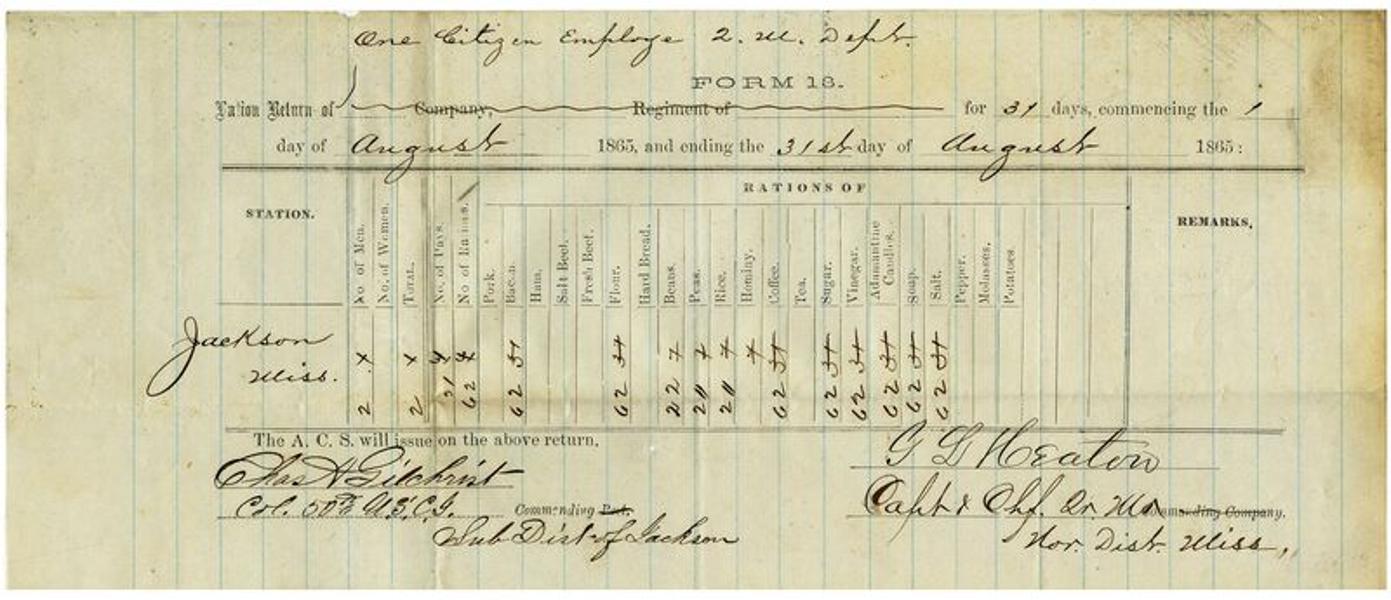 One Citizen Employe Q. M. Dept.
FORM 18.
Ration Return of Company, Regiment of for 31 days, commencing the 1
day of August 1865, and ending the 31st day of August 1865:
STATION. No. of Men. No. of Women. TOTAL. No. of Days. No. of Rations. RATIONS OF REMARKS,
Pork. Bacon. Ham. Salt Beef. Fresh Beef. Flour. Hard Bread. Beans. Peas. Rice. Hominy. Coffee. Tea. Sugar. Vinegar. Adamantine Candles. Soap. Salt. Pepper. Molasses. Potatoes.
Jackson
Miss.
2 2 31 62 62 62 62 62 62 62 62 62
The A. C. S. will issue on the above return,
Chas A Gilchrist
Col. 50th U.S.C.I. Commanding Post.
Sub Dist of Jackson
G L Heaton
Capt & Chf. Qr. Mr Commanding Company.
Nor. Dist. Miss.,